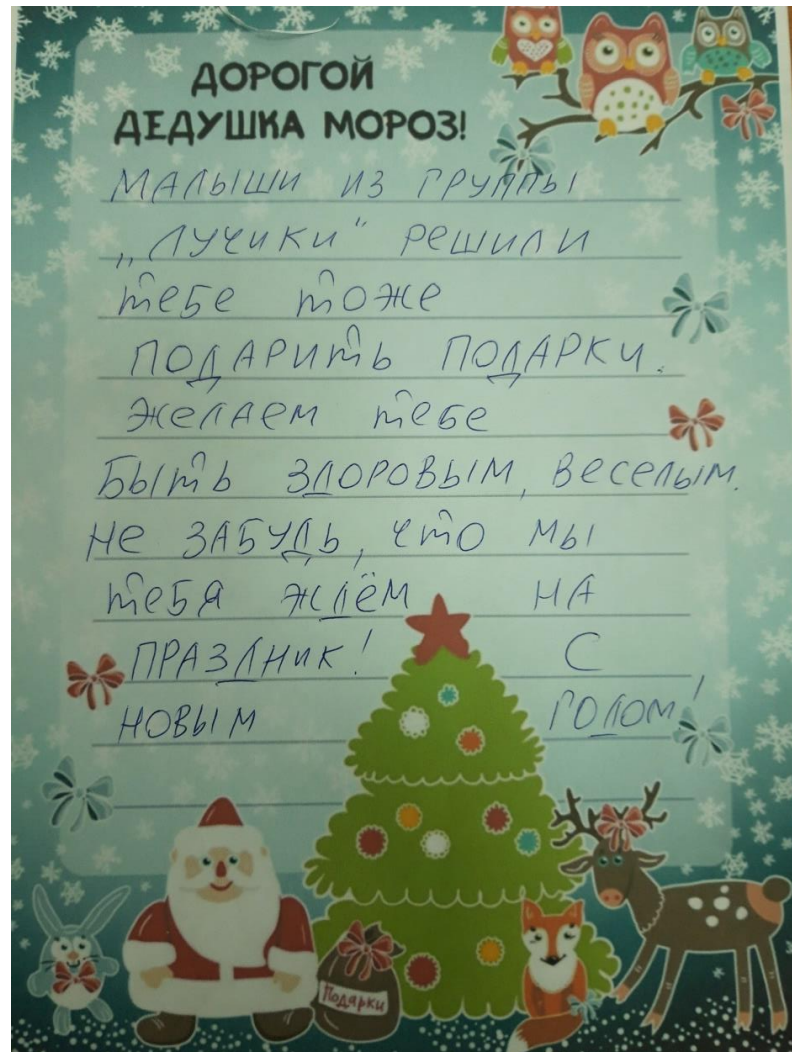 ДОРОГОЙ
ДЕДУШКА МОРОЗ!
МАЛЫШИ ИЗ ГРУППЫ
„ЛУЧИКИ“ РЕШИЛИ
ТЕБЕ ТОЖЕ
ПОДАРИТЬ ПОДАРКИ.
ЖЕЛАЕМ ТЕБЕ
БЫТЬ ЗДОРОВЫМ, ВЕСЕЛЫМ.
НЕ ЗАБУДЬ, ЧТО МЫ
ТЕБЯ ЖДЁМ НА
ПРАЗДНИК! С
НОВЫМ ГОДОМ!
Подарки